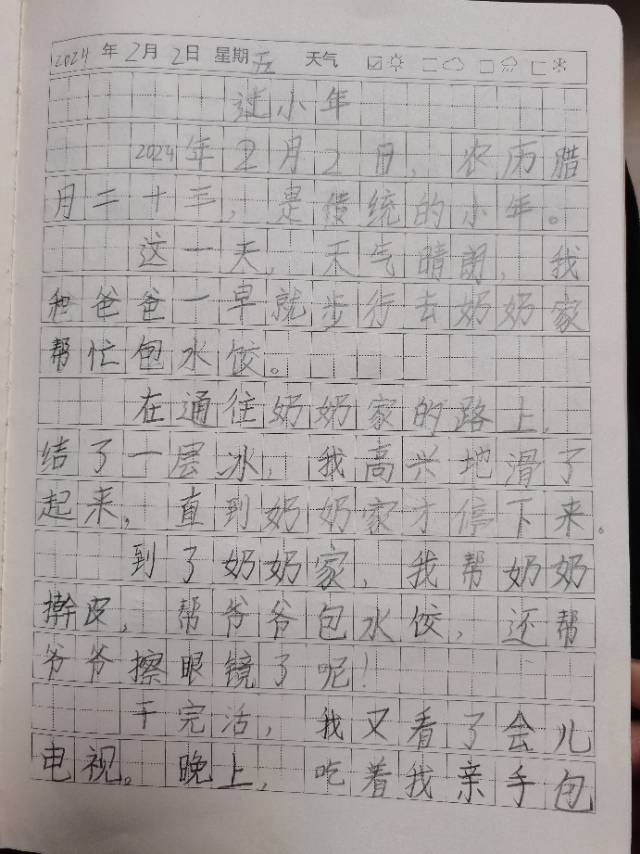 2024年2月2日 星期五 天气
过小年
2024年2月2日，农历腊
月二十三，是传统的小年。
这一天，天气晴朗，我
和爸爸一早就步行去奶奶家
帮忙包水饺。
在通往奶奶家的路上，
结了一层冰，我高兴地滑了
起来，直到奶奶家才停下来。
到了奶奶家，我帮奶奶
擀皮，帮爷爷包水饺，还帮
爷爷擦眼镜了呢！
干完活，我又看了会儿
电视。晚上，吃着我亲手包